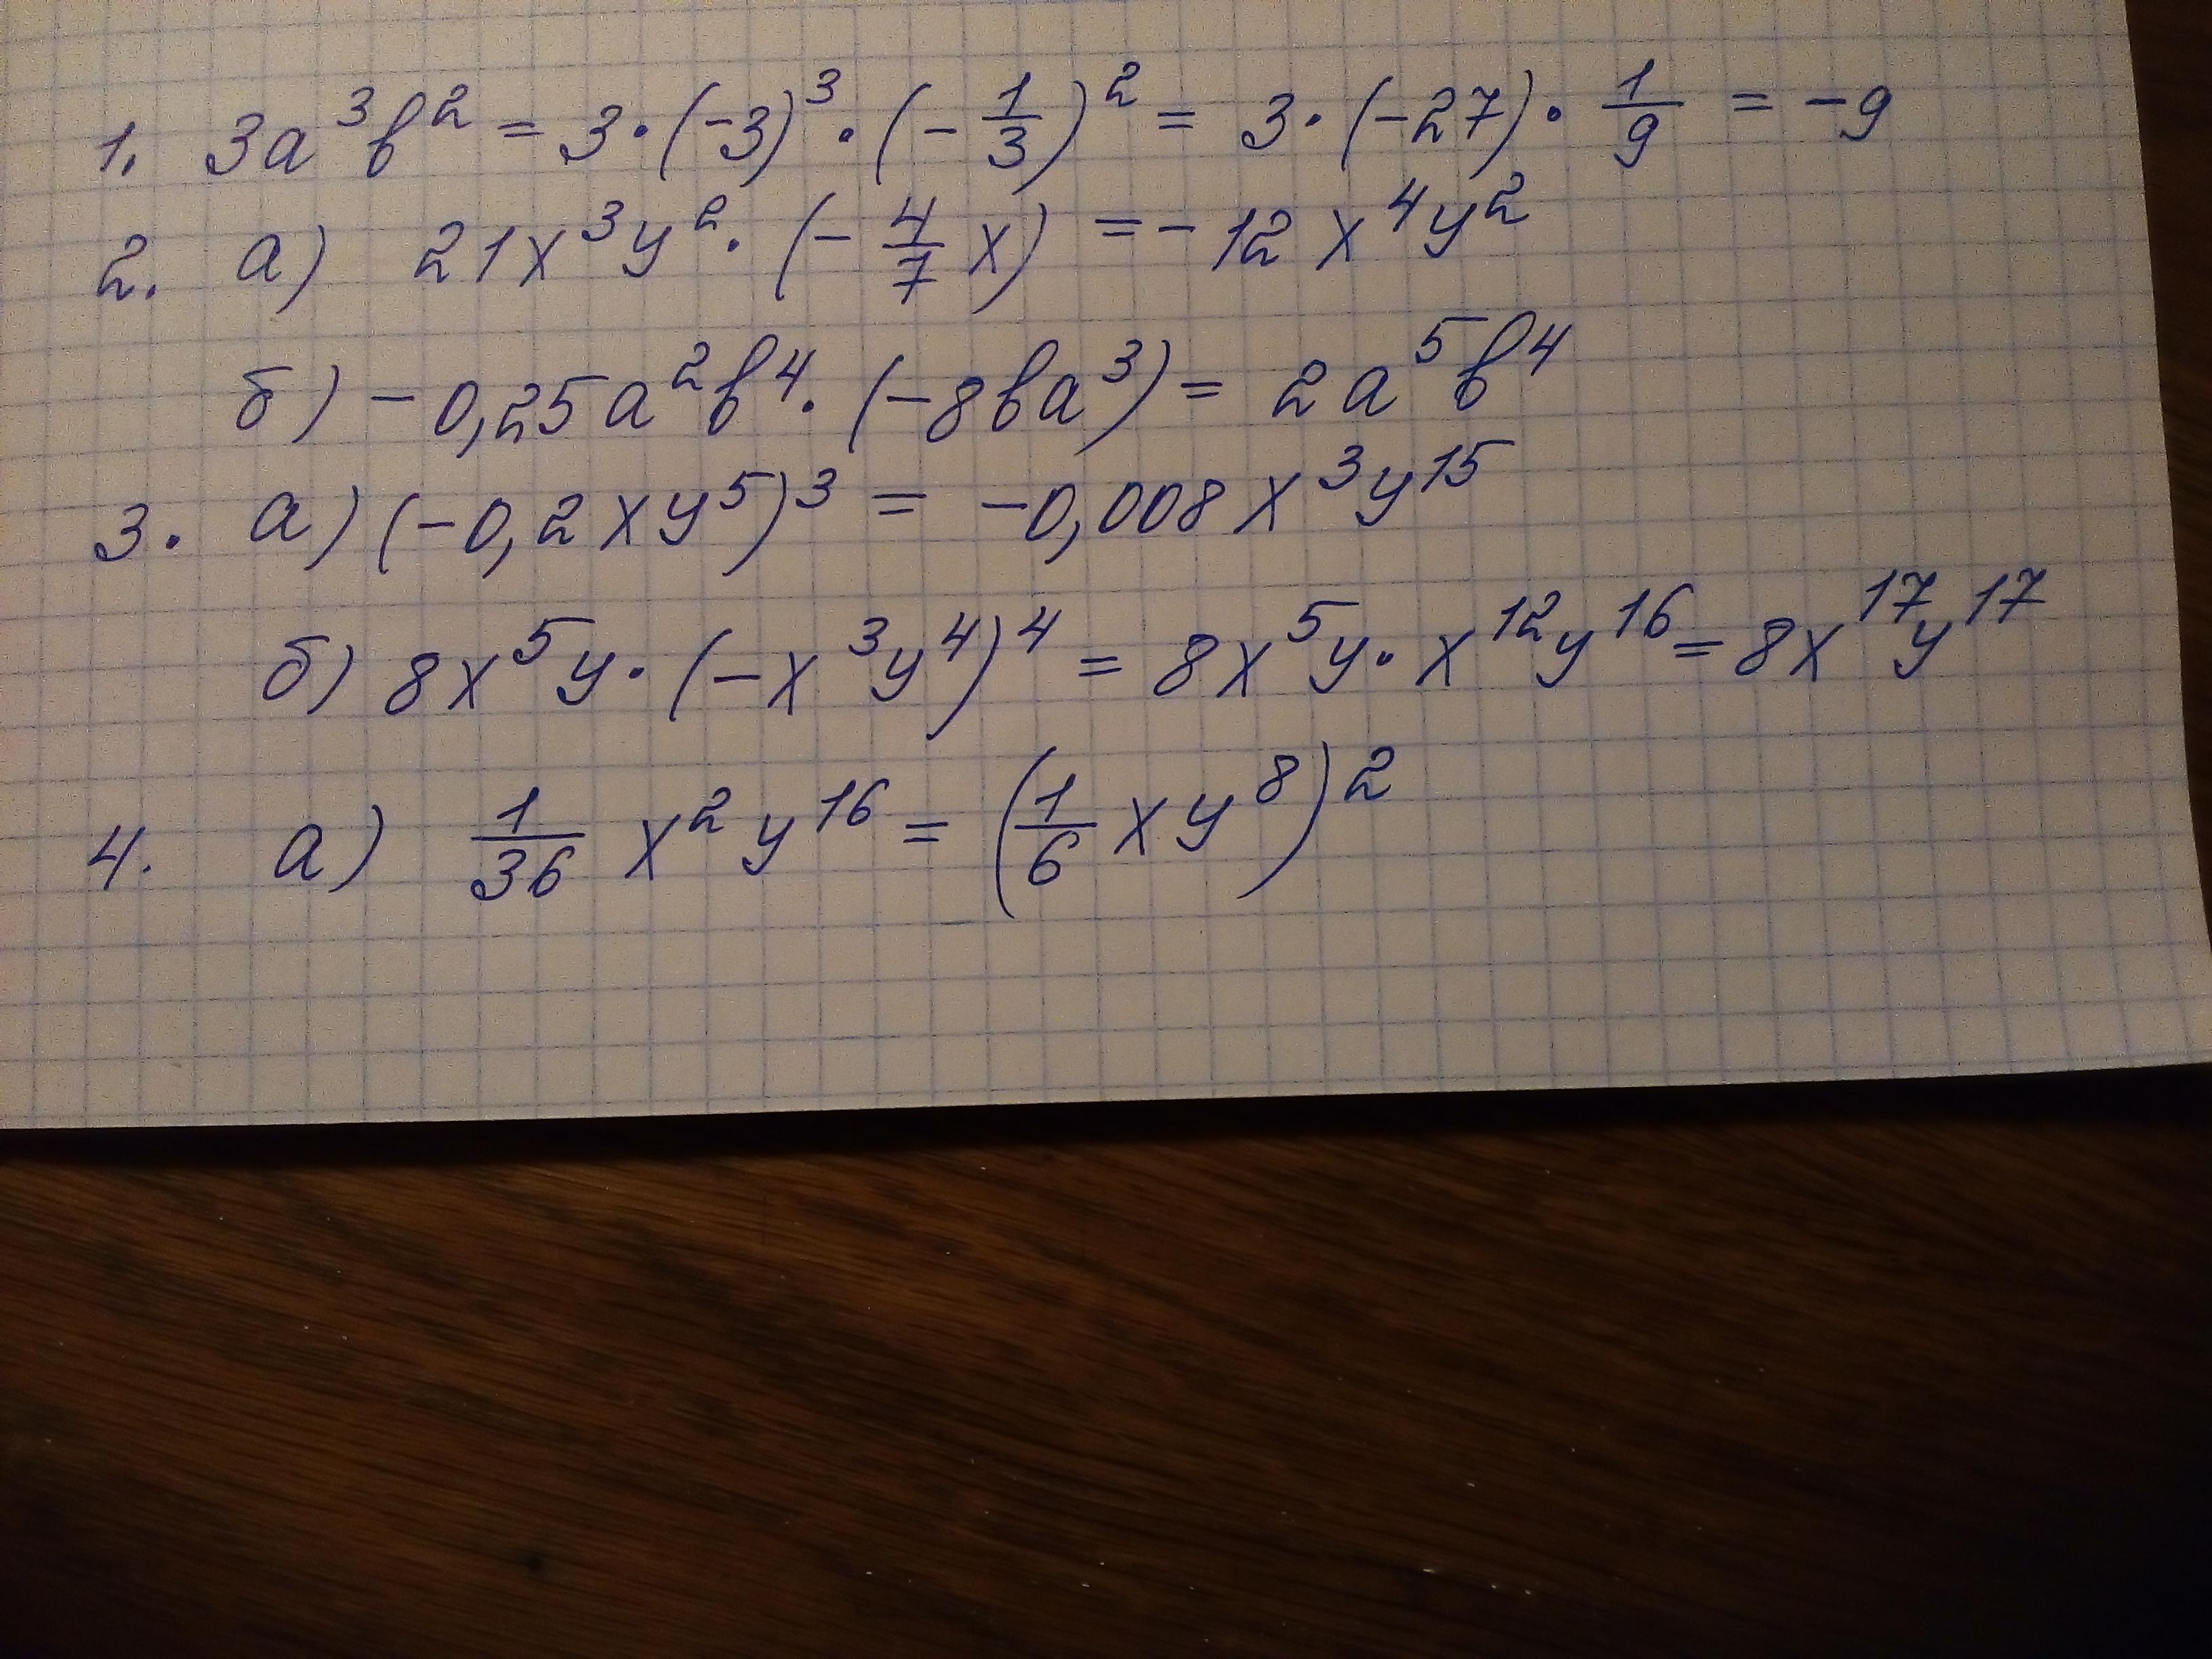 1. 3a³b² = 3·(-3)³·(-1/3)² = 3·(-27)·1/9 = -9
2. а) 21x³y²·(-4/7 x) = -12x⁴y²
б) -0,25a²b⁴·(-8ba³) = 2a⁵b⁴
3. а) (-0,2xy⁵)³ = -0,008x³y¹⁵
б) 8x⁵y·(-x³y⁴)⁴ = 8x⁵y·x¹²y¹⁶ = 8x¹⁷y¹⁷
4. а) 1/36 x²y¹⁶ = (1/6 xy⁸)²